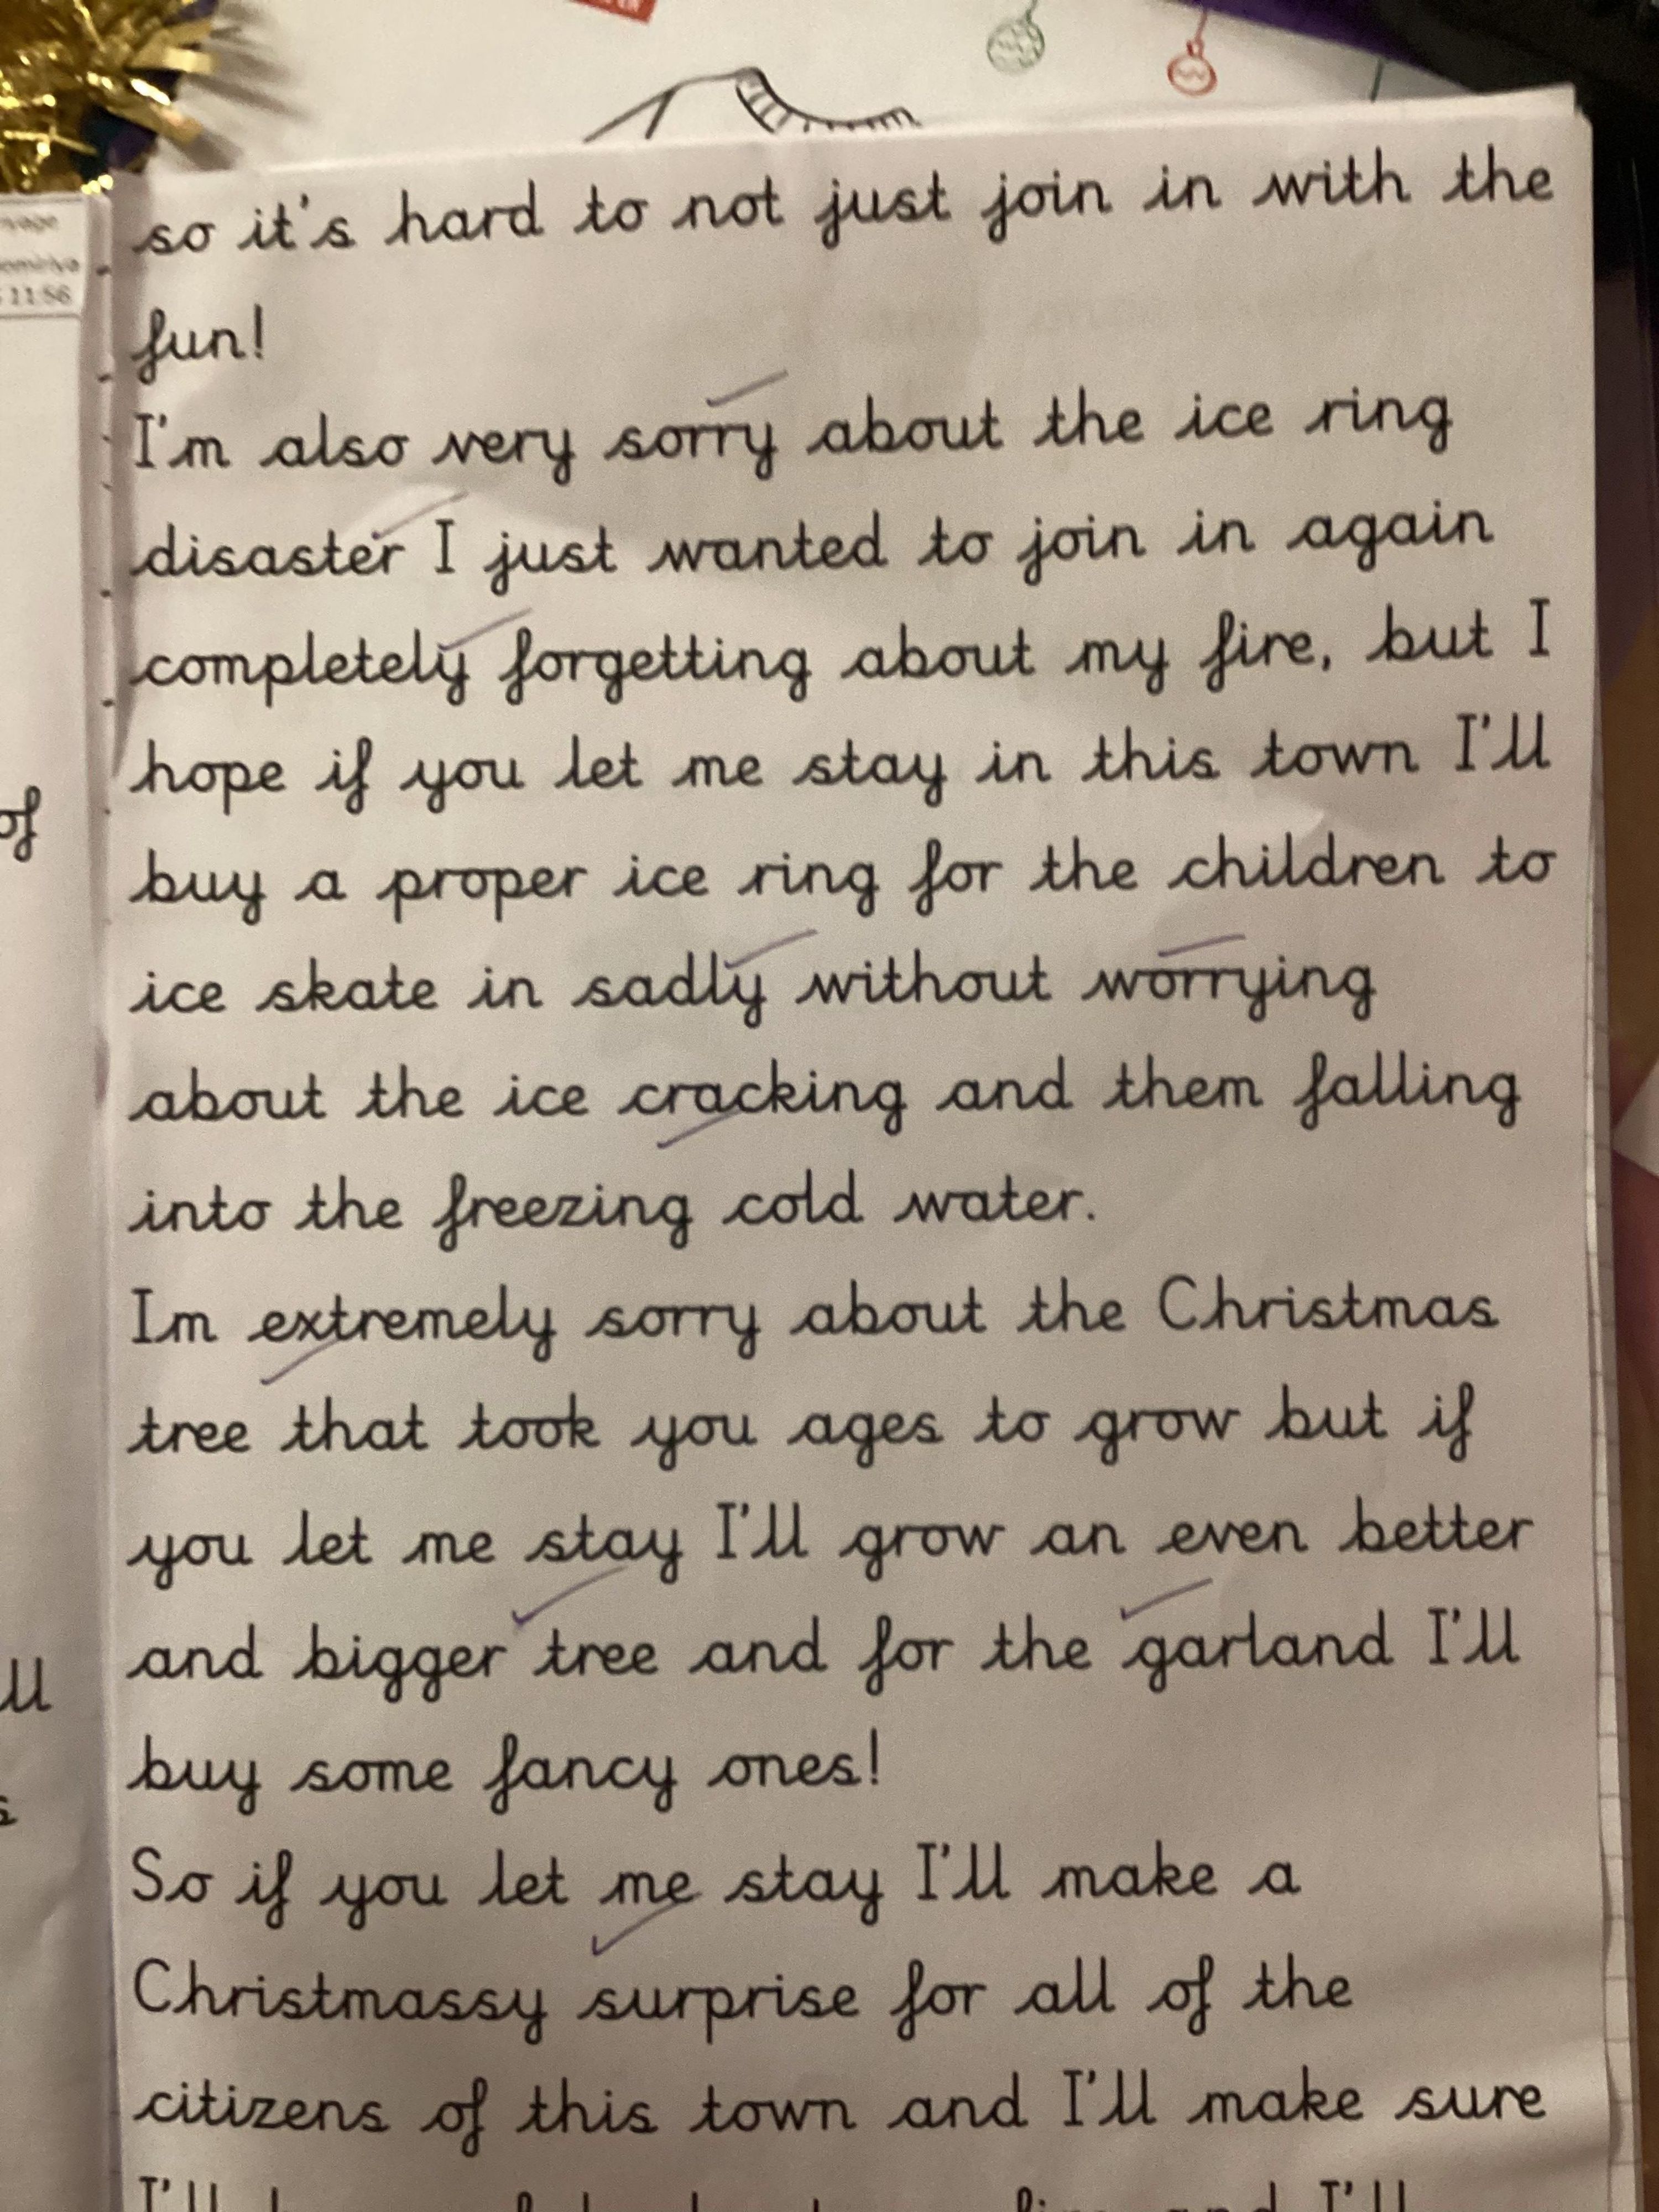 so it's hard to not just join in with the
fun!
I'm also very sorry about the ice ring
disaster I just wanted to join in again
completely forgetting about my fire, but I
hope if you let me stay in this town I'll
buy a proper ice ring for the children to
ice skate in sadly without worrying
about the ice cracking and them falling
into the freezing cold water.
Im extremely sorry about the Christmas
tree that took you ages to grow but if
you let me stay I'll grow an even better
and bigger tree and for the garland I'll
buy some fancy ones!
So if you let me stay I'll make a
Christmassy surprise for all of the
citizens of this town and I'll make sure
I'll and I'll
11:56
of